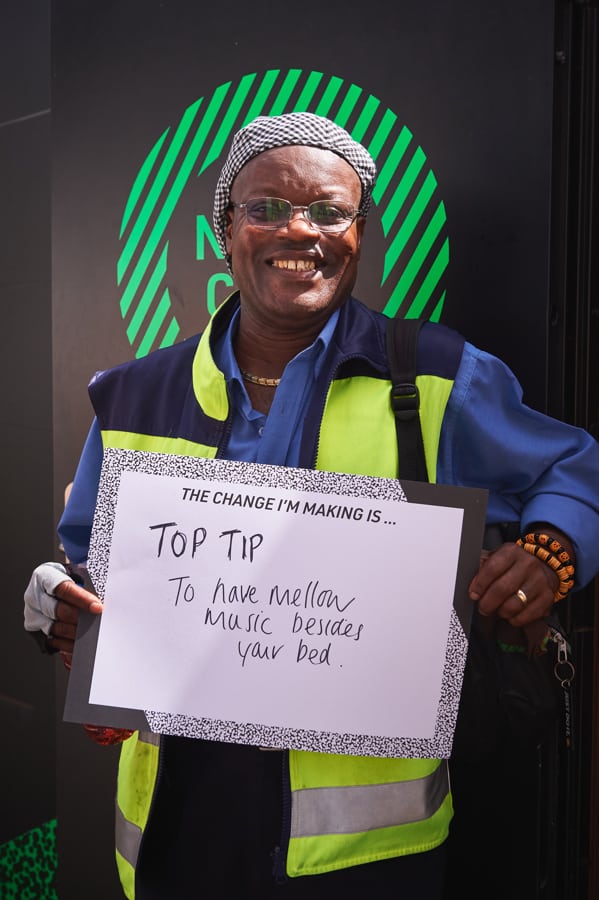 N
C
THE CHANGE I'M MAKING IS ...
TOP TIP
To have mellow
music besides
your bed.
JUST DO IT.